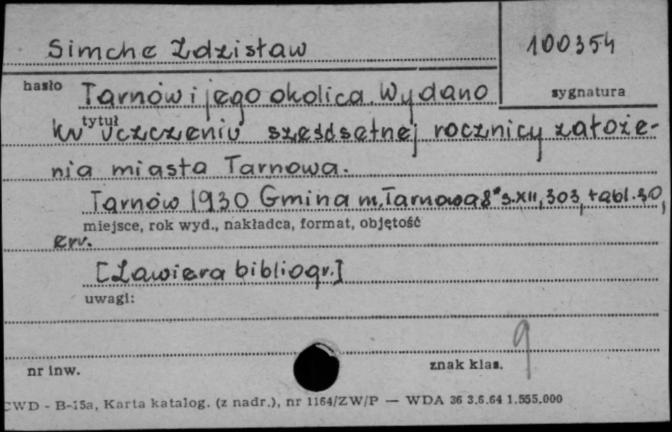 Simche Zdzisław
100354
hasło
sygnatura
Tarnów i jego okolica. Wydano
tytuł
ku uczczeniu sześdsetnej rocznicy założe-
nia miasta Tarnowa.
Tarnów 1930 Gmina m. Tarnowa 8° s. XII, 303, tabl. 30,
miejsce, rok wyd., nakładca, format, objętość
err.
[Zawiera bibliogr.]
uwagi:
9
nr inw.
znak klas.
CWD - B-15a, Karta katalog. (z nadr.), nr 1164/ZW/P — WDA 36 3.6.64 1.555.000